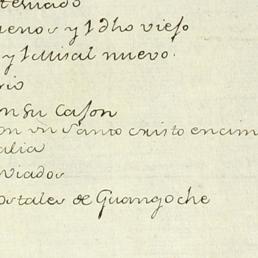 ternado
uenos y 1 dho viejo
y 1 Misal nuevo.
rio
en su Cajon
con vn Santo cristo encim
alia
viados
ostales de Guangoche